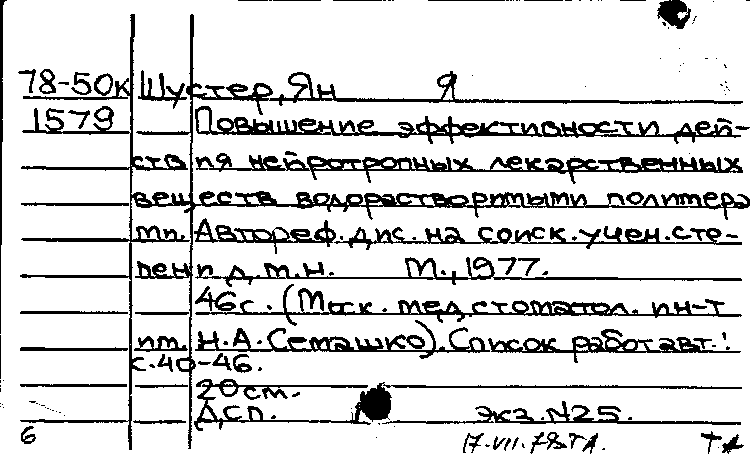 78-50к Шустер, Ян Я
1579 Повышение эффективности дей-
ствия нейротропных лекарственных
веществ водорастворимыми полимера
ми. Автореф. дис. на соиск. учен. сте-
пени д.м.н. М., 1977.
46с. (Моск. мед. стоматол. ин-т
им. Н.А. Семашко). Список работ авт.:
с. 40-46.
20см.
Д.с.п. экз. N25.
6 17.VII.78 ТА. ТА